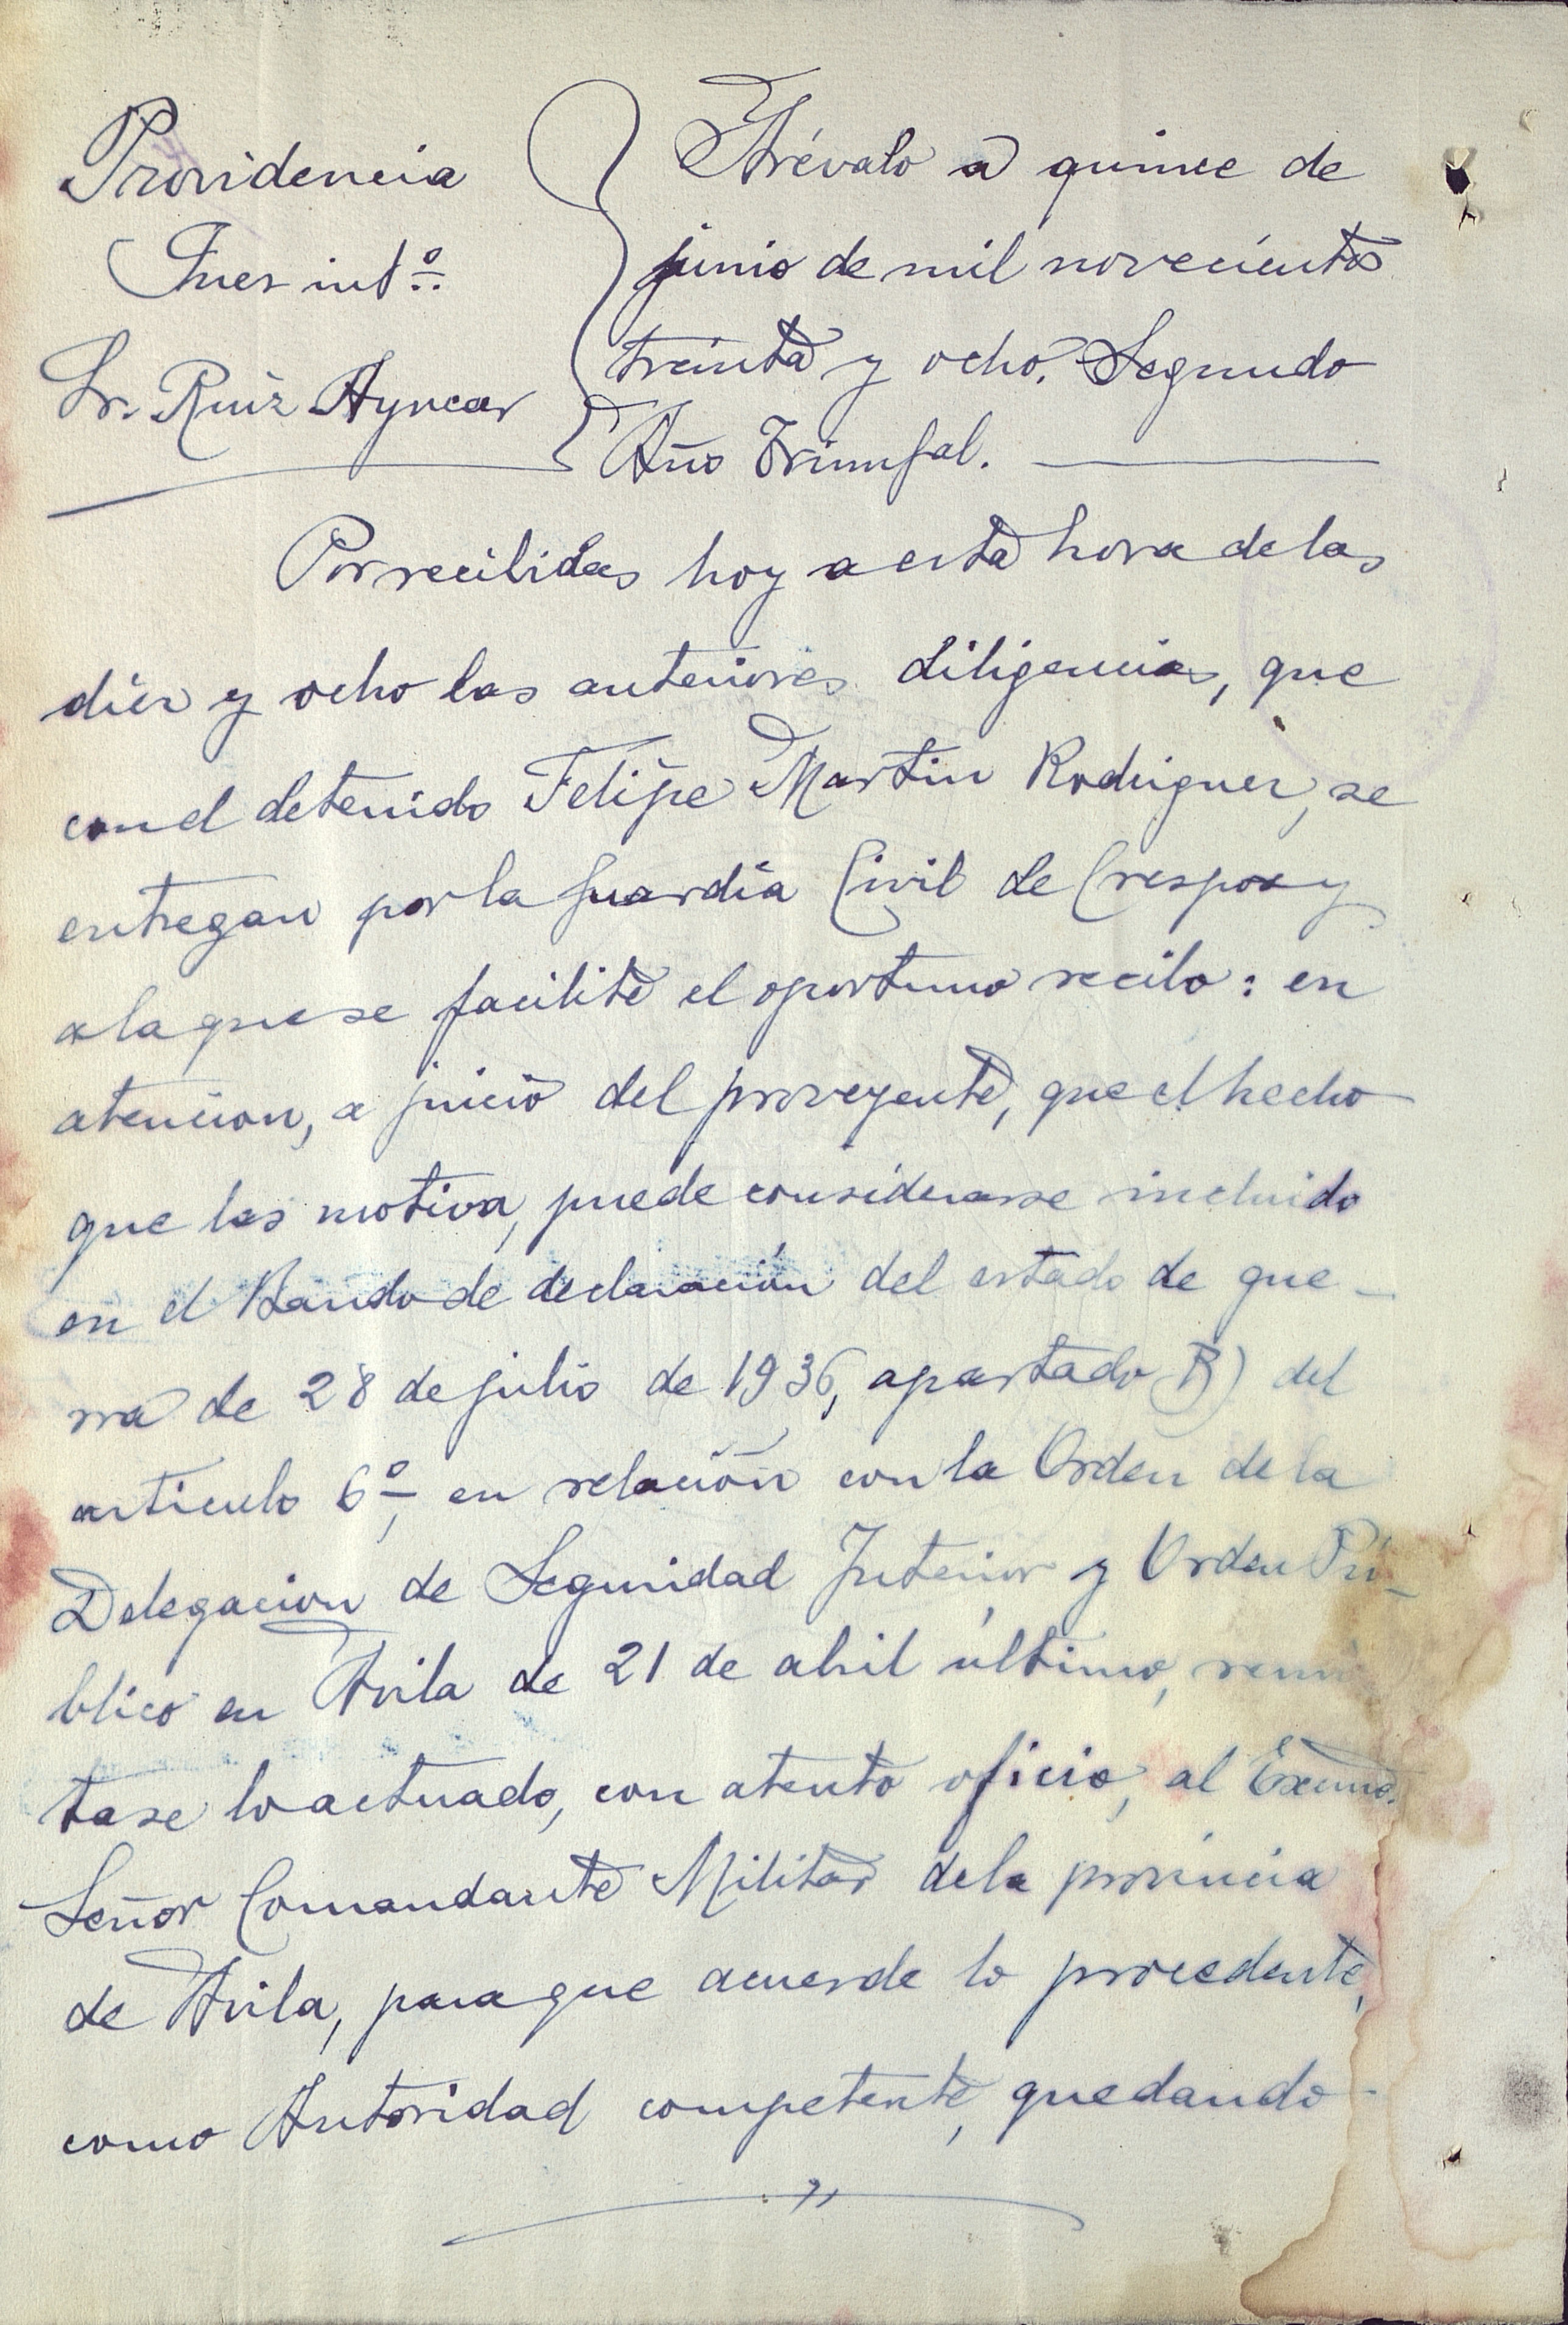 Providencia
Juez intº.
Sr. Ruiz Ayucar
Arévalo a quince de
junio de mil novecientos
treinta y ocho. Segundo
Año Triunfal.
Por recibidas hoy a esta hora de las
diez y ocho las anteriores diligencias, que
con el detenido Felipe Martin Rodriguez, se
entregan por la Guardia Civil de Crespos y
a la que se facilite el oportuno recibo: en
atencion, a juicio del proveyente, que el hecho
que las motiva, puede considerarse incluido
en el Bando de declaración del estado de gue-
rra de 28 de julio de 1936, apartado B) del
articulo 6º, en relación con la Orden de la
Delegacion de Seguridad Interior y Orden Pú-
blico en Avila de 21 de abril último, remi
tase lo actuado, con atento oficio, al Excmo.
Señor Comandante Militar de la provincia
de Avila, para que acuerde lo procedente,
como Autoridad competente, quedando